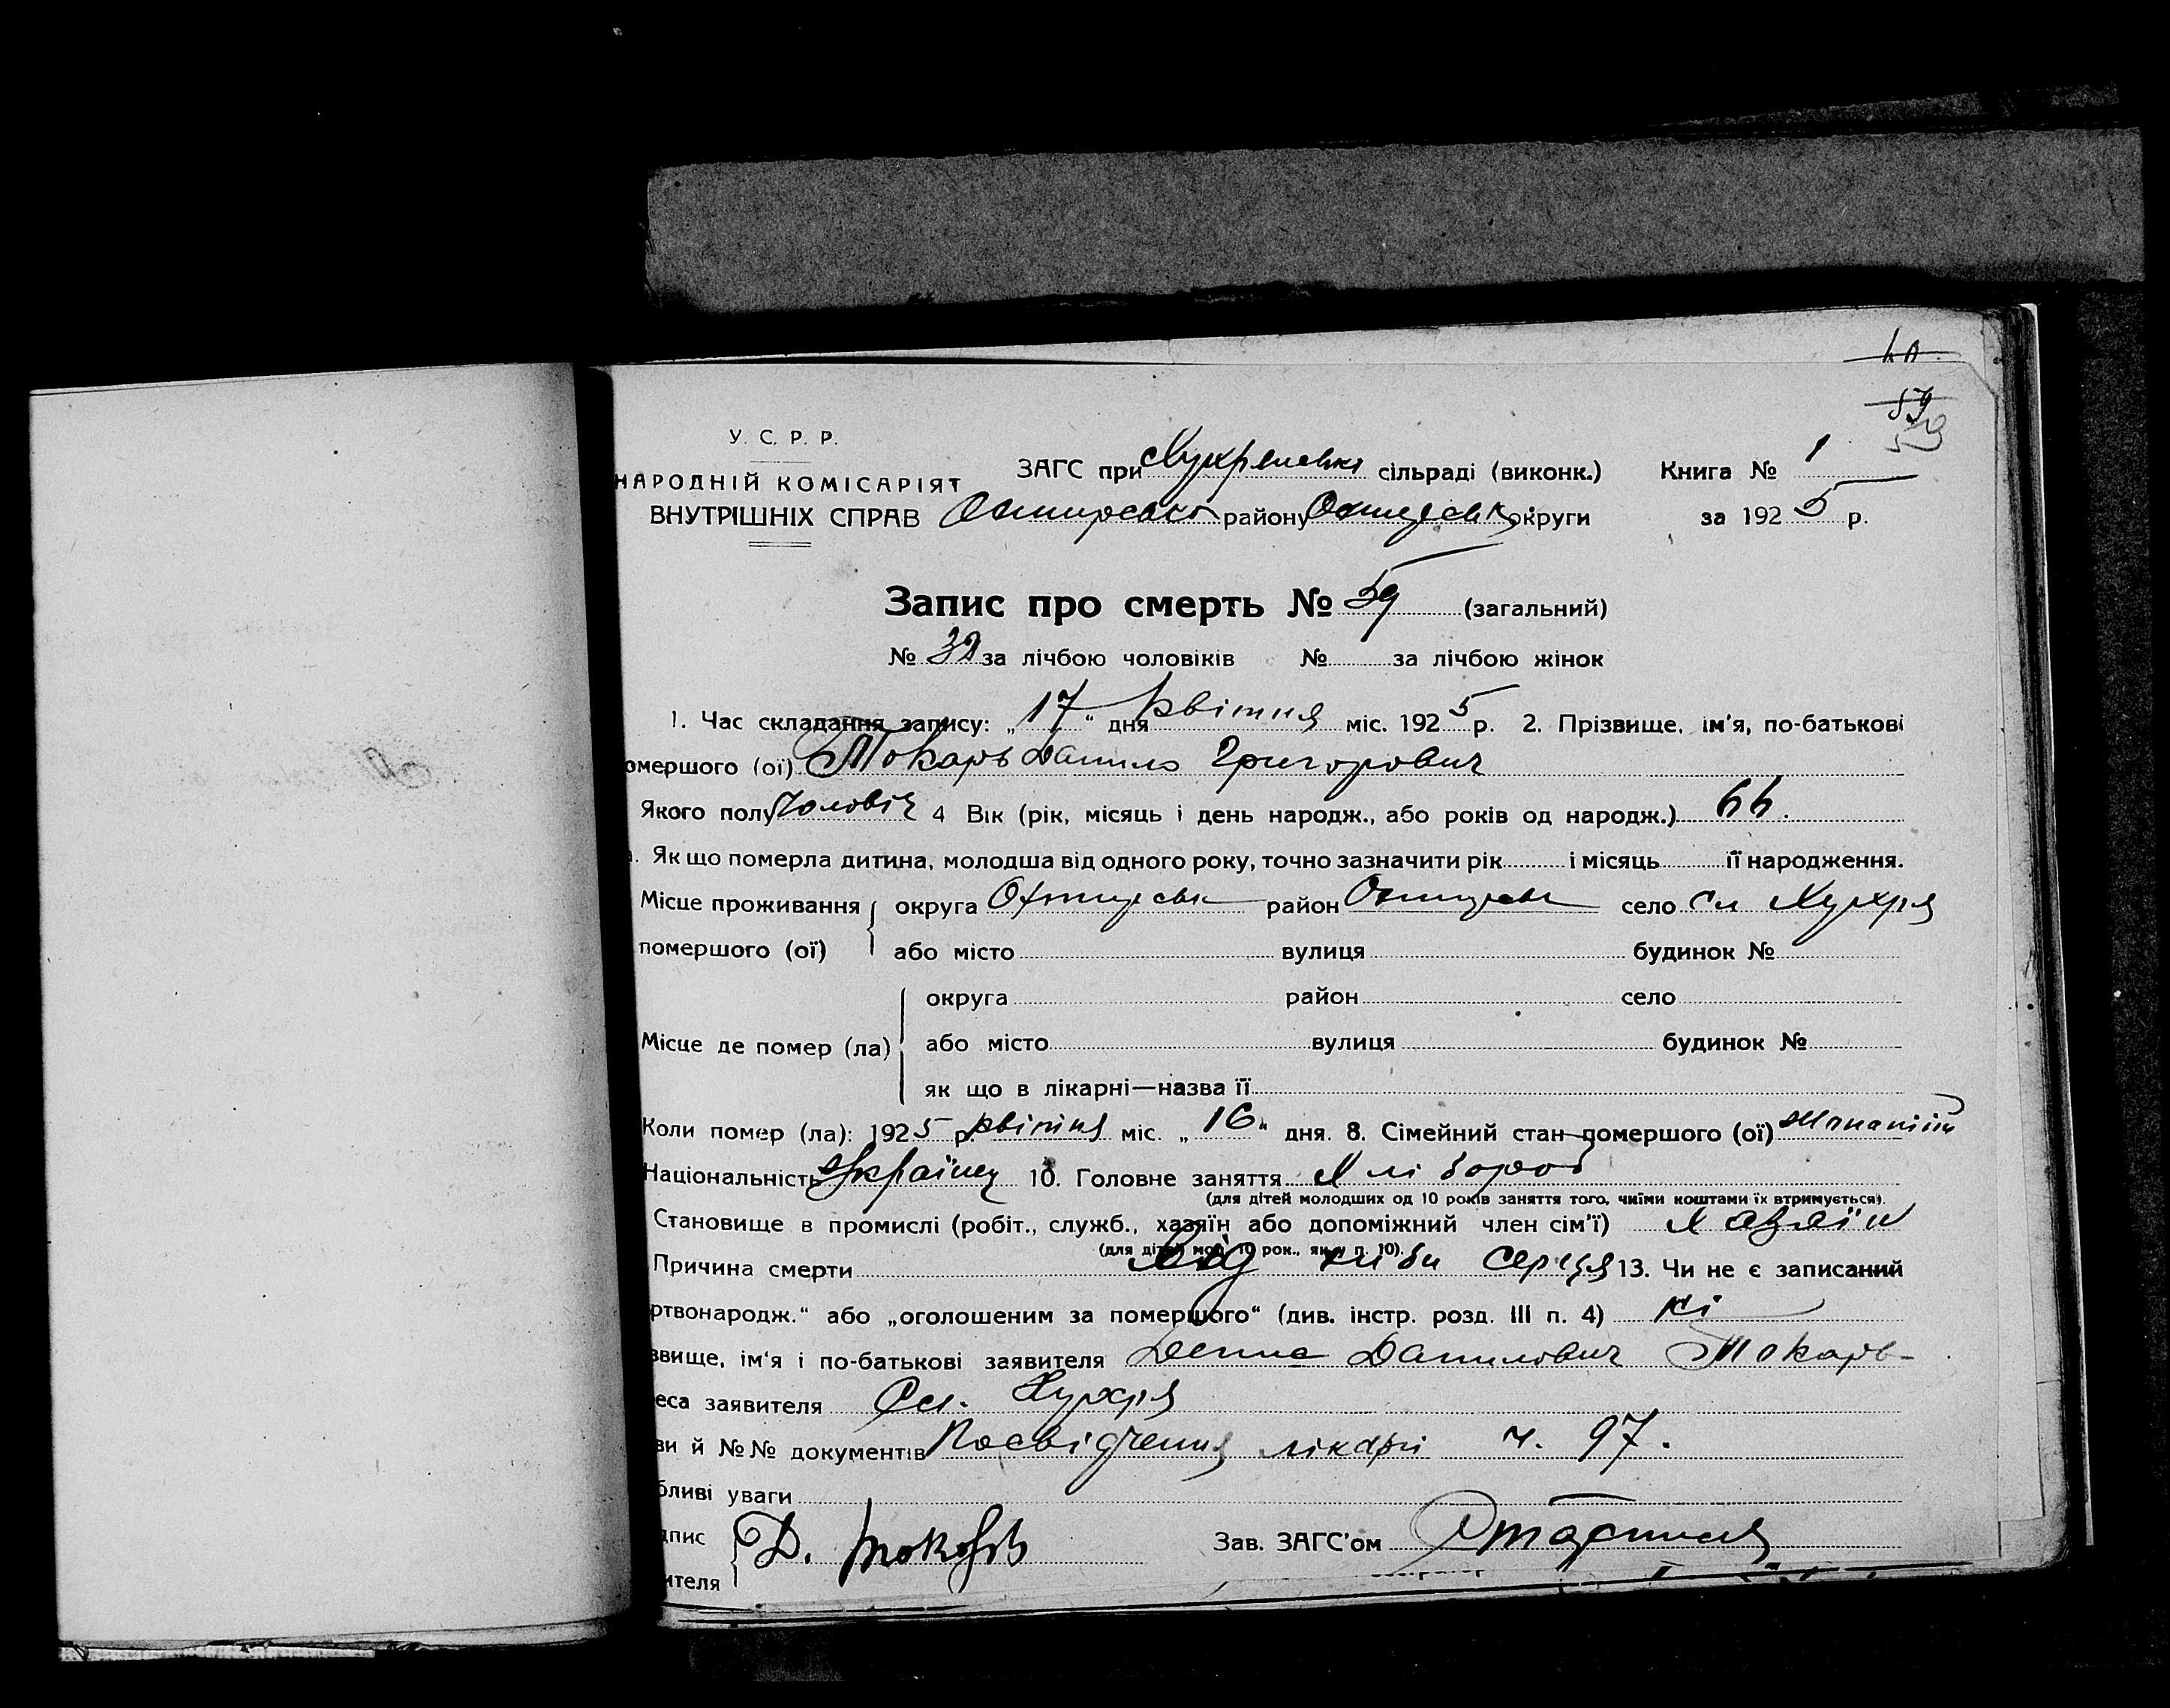 57
59
У. С. Р. Р.
НАРОДНІЙ КОМІСАРІЯТ
ВНУТРІШНІХ СПРАВ
ЗАГС при сільраді (виконк.) Книга № 1
району округи за 1925 р.
Запис про смерть № 59 (загальний)
№ 32 за лічбою чоловіків № за лічбою жінок
1. Час складання запису: „17“ дня Квітня міс. 1925 р. 2. Прізвище, ім'я, по-батькові
омершого (ої) Токарь Данило Григорович
Якого полу Чоловіч 4 Вік (рік, місяць і день народж., або років од народж.) 66.
Як що померла дитина, молодша від одного року, точно зазначити рік і місяць її народження.
Місце проживання округа Охтирськ район Охтирськ село Сл Хухря
помершого (ої) або місто вулиця будинок №
округа район село
Місце де помер (ла) або місто вулиця будинок №
як що в лікарні—назва її
Коли помер (ла): 1925 р. Квітня міс. „16“ дня. 8. Сімейний стан помершого (ої)
Національність Українец 10. Головне заняття Хлібороб
(для дітей молодших од 10 років заняття того, чиїми коштами їх втримується).
Становище в промислі (робіт., служб., хазяїн або допоміжний член сім'ї) Хазяїн
(для дітей мол. 10 рок., як у п. 10).
Причина смерти Од хиби серця 13. Чи не є записаний
ртвонародж.“ або „оголошеним за помершого“ (див. інстр. розд. III п. 4) ні
звище, ім'я і по-батькові заявителя Данилович Токарь
еса заявителя Сл. Хухря
ви й №№ документів Посвідчення лікарні ч. 97.
бливі уваги
дпис
ителя Д. Токарь Зав. ЗАГС'ом